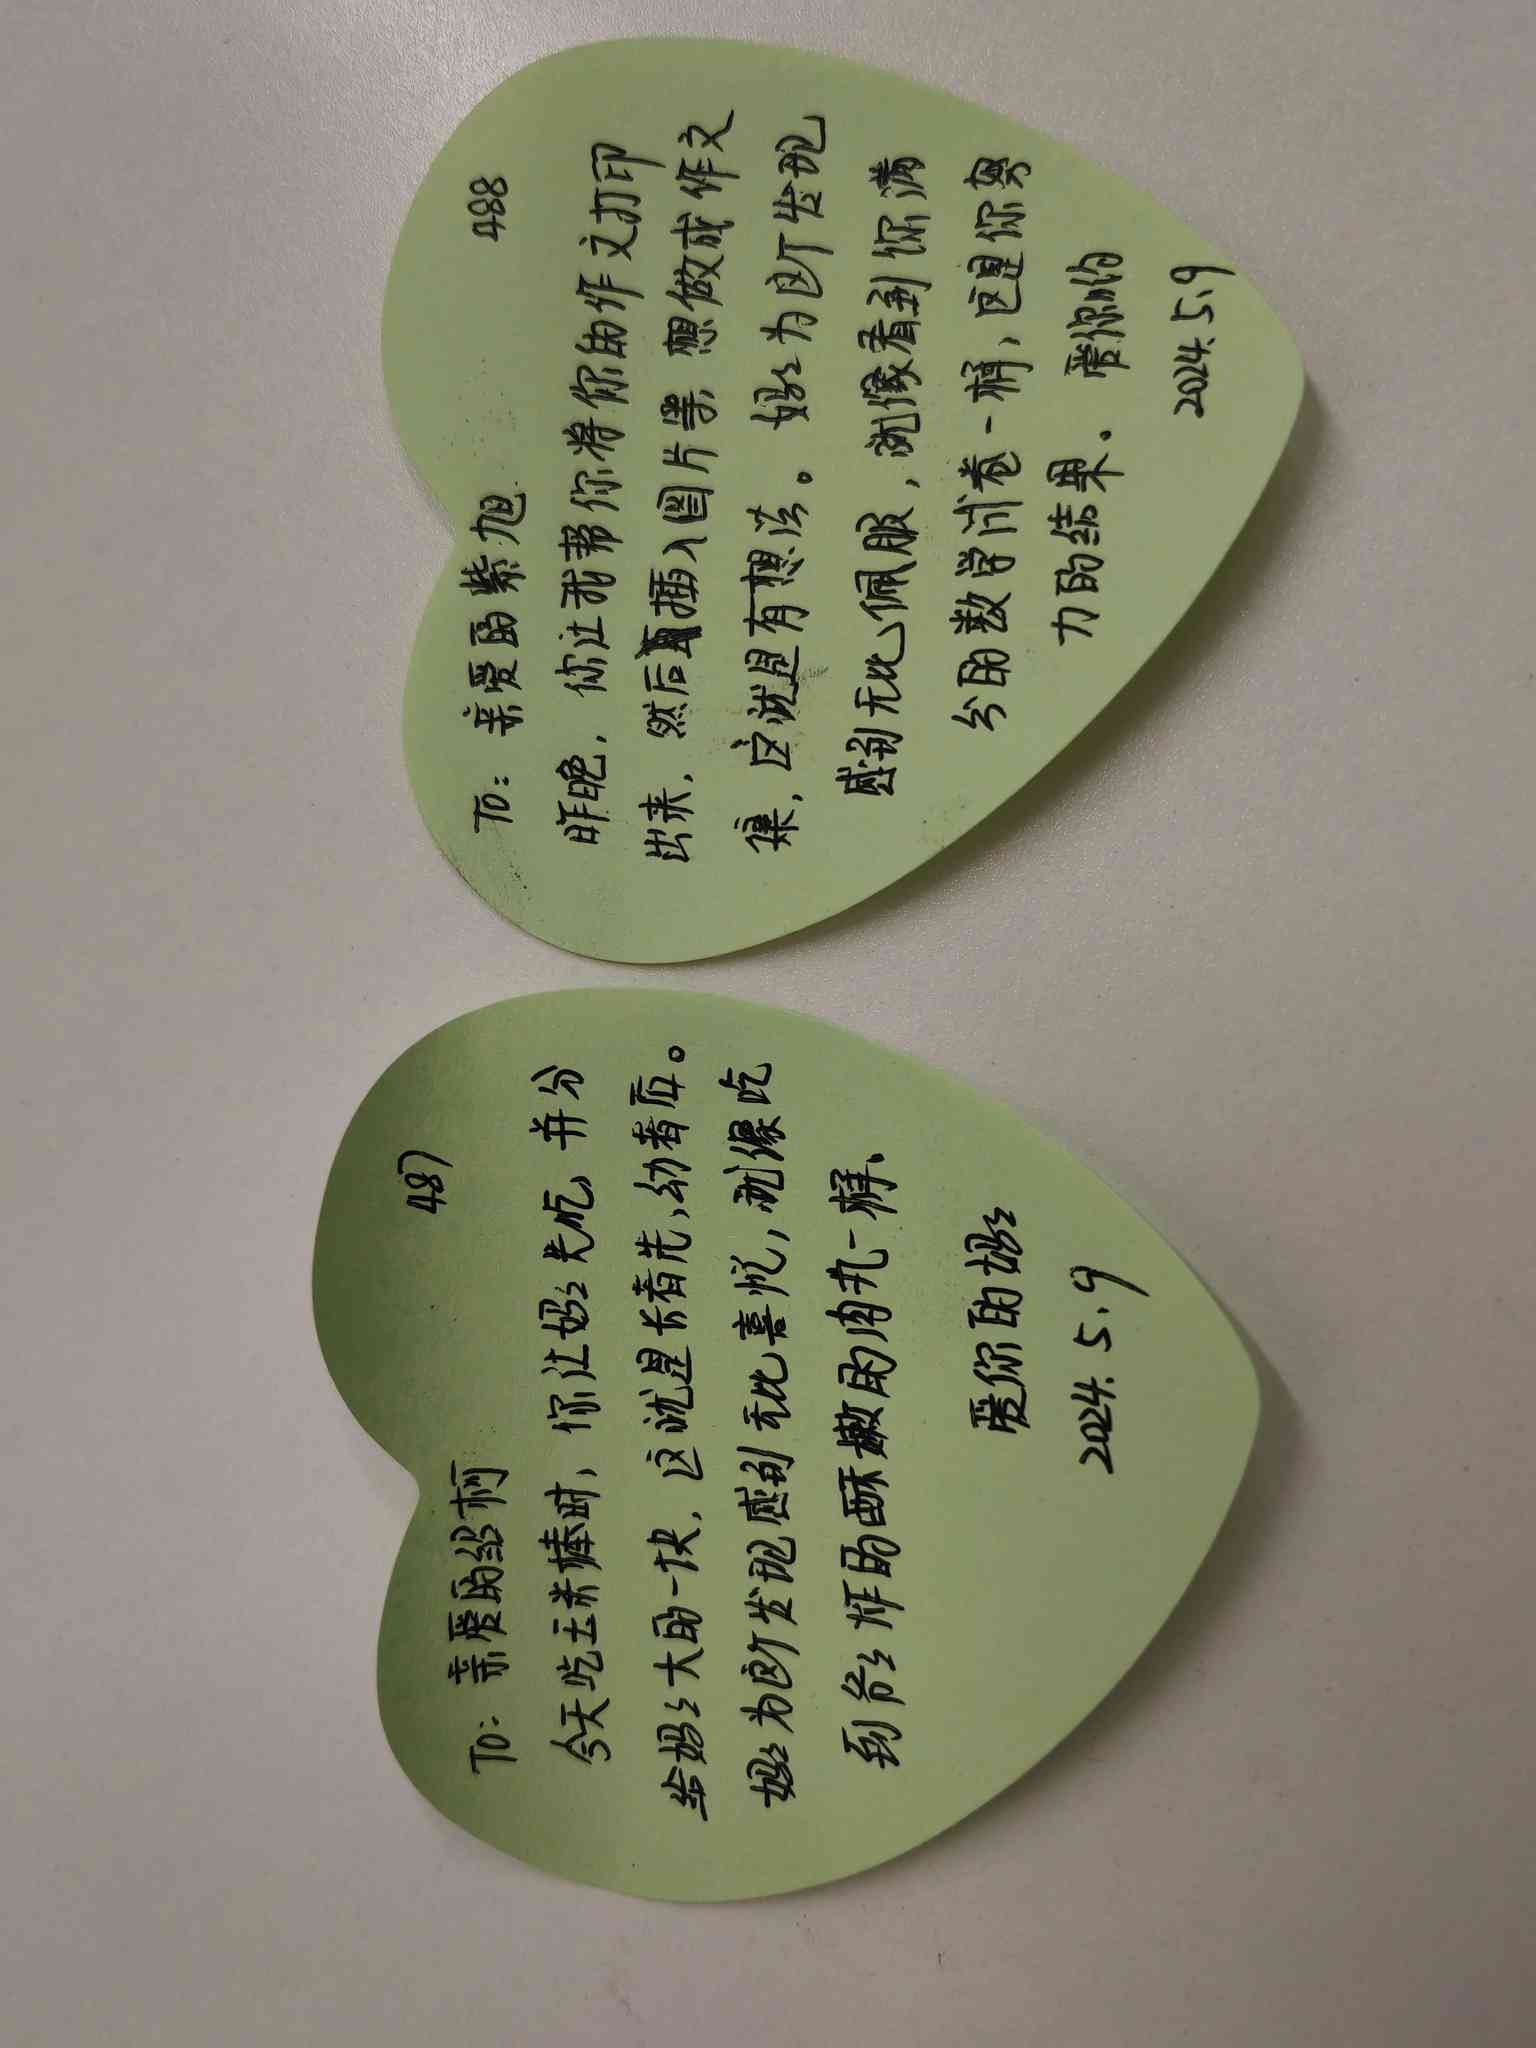 487
To: 亲爱的绍柯
今天吃玉米棒时，你让妈妈先吃，并分
给妈妈大的一块，这就是长者先，幼者后。
妈妈为这个发现感到无比喜悦，就像吃
到爸爸炸的酥嫩的肉丸一样、
爱你的妈妈
2024.5.9
488
To: 亲爱的紫旭
昨晚，你让我帮你将你的作文打印
出来，然后再插入图片等 想做成作文
集，这就是有想法。妈妈为这个发现
感到无比佩服，就像看到你满
分的数学试卷一样，这是你努
力的结果。爱你的
2024.5.9